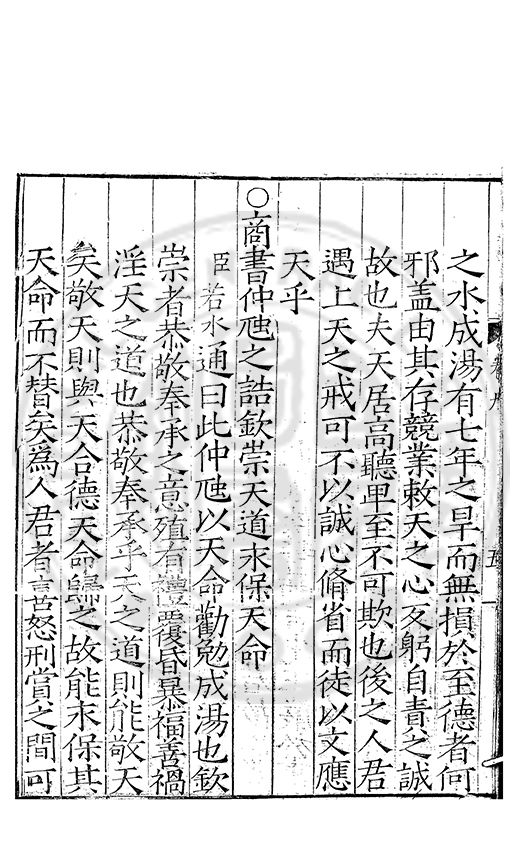 之水成湯有七年之旱而無損於至德者何
邪盖由其存競業敕天之心反躬自責之誠
故也夫天居高聽卑至不可欺也後之人君
遇上天之戒可不以誠心脩省而徒以文應
天乎
○商書仲虺之誥欽崇天道永保天命
臣若水通曰此仲虺以天命勸勉成湯也欽
崇者恭敬奉承之意殖有禮覆昏暴福善禍
淫天之道也恭敬奉承乎天之道則能敬天
矣敬天則與天合德天命歸之故能永保其
天命而不替矣為人君者喜怒刑賞之間可